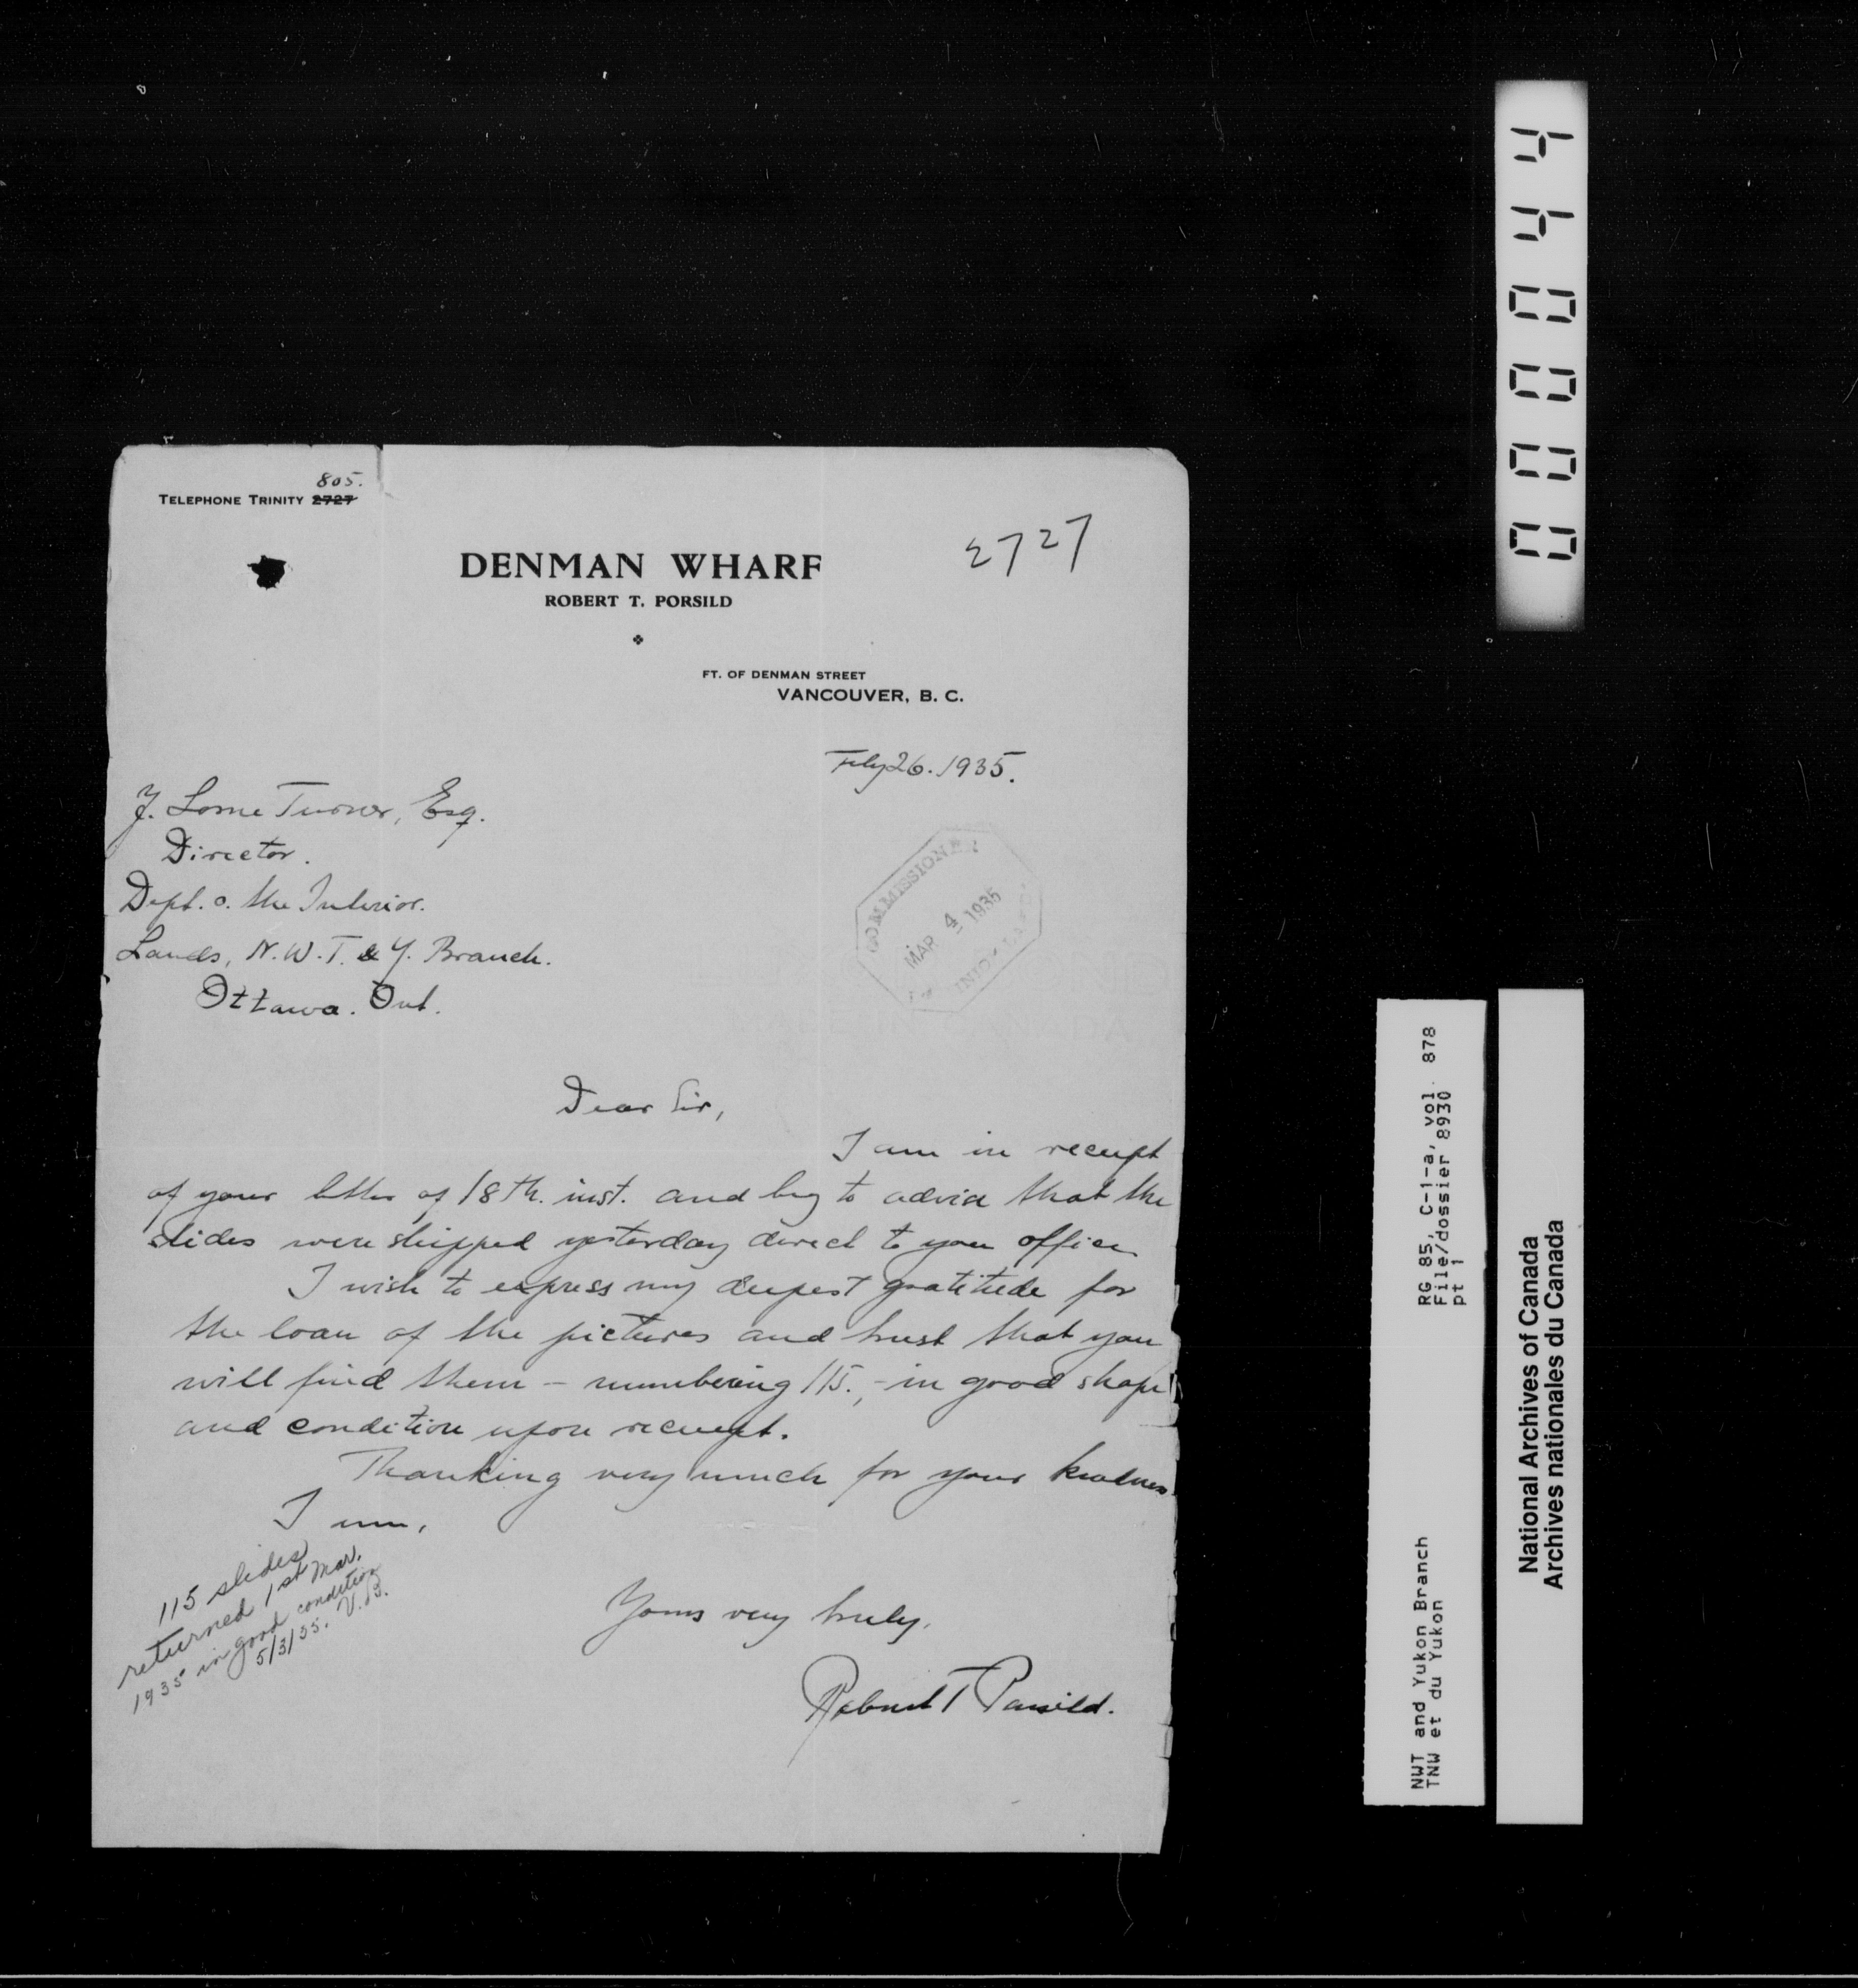 805.
TELEPHONE TRINITY 2727
2727
DENMAN WHARF
ROBERT T. PORSILD
FT. OF DENMAN STREET
VANCOUVER, B. C.
Feby 26. 1935.
J. Lorne Turner, Esq.
Director.
Dept. o. the Interior.
Lands, N.W.T. & Y. Branch.
Ottawa. Ont.
COMMISSIONER
MAR 4 1935
Dear Sir,
I am in receipt
of your letter of 18th. inst. and beg to advise that the
slides were shipped yesterday direct to your office.
I wish to express my deepest gratitude for
the loan of the pictures and trust that you
will find them - numbering 115., - in good shape
and condition upon receipt.
Thanking very much for your kindness.
I am,
Yours very truly,
Robert T Porsild.
115 slides
returned 1st Mar.
1935 in good condition
5/3/35. V.B.
000044
RG 85, C-1-a, vol. 878
File/dossier 8930
pt 1
NWT and Yukon Branch
TNW et du Yukon
National Archives of Canada
Archives nationales du Canada